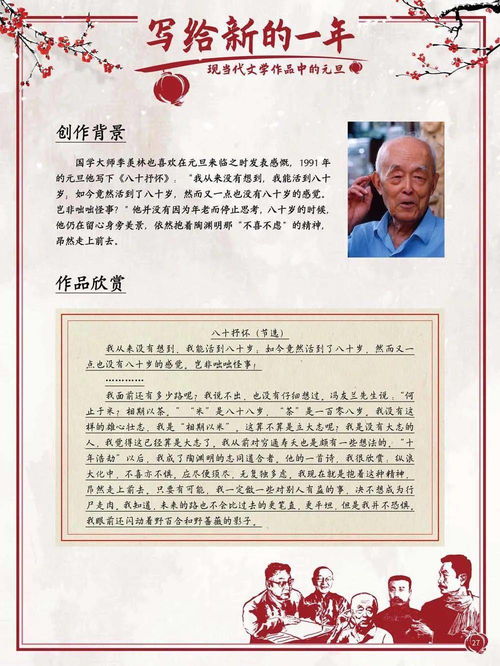 写给新的一年
现当代文学作品中的元旦
创作背景
国学大师季羡林也喜欢在元旦来临之时发表感慨，1991年
的元旦他写下《八十抒怀》：“我从来没有想到，我能活到八十
岁；如今竟然活到了八十岁，然而又一点也没有八十岁的感觉。
岂非咄咄怪事？”他并没有因为年老而停止思考，八十岁的时候，
他仍在留心身旁美景，依然抱着陶渊明那“不喜不虑”的精神，
昂然走上前去。
作品欣赏
八十抒怀（节选）
我从来没有想到，我能活到八十岁；如今竟然活到了八十岁，然而又一
点也没有八十岁的感觉，岂非咄咄怪事！
…………
我面前还有多少路呢？我说不出，也没有仔细想过。冯友兰先生说：“何
止于米？相期以茶。”“米”是八十八岁，“茶”是一百零八岁。我没有这
样的雄心壮志，我是“相期以米”。这算不算是立大志呢？我是没有大志的
人，我觉得这已经算是大志了。我从前对穷通寿夭也是颇有一些想法的。“十
年浩劫”以后，我成了陶渊明的志同道合者。他的一首诗，我很欣赏：纵浪
大化中，不喜亦不惧。应尽便须尽，无复独多虑。我现在就是抱着这种精神，
昂然走上前去。只要有可能，我一定做一些对别人有益的事，决不想成为行
尸走肉。我知道，未来的路也不会比过去的更笔直，更平坦，但是我并不恐惧。
我眼前还闪动着野百合和野蔷薇的影子。
27